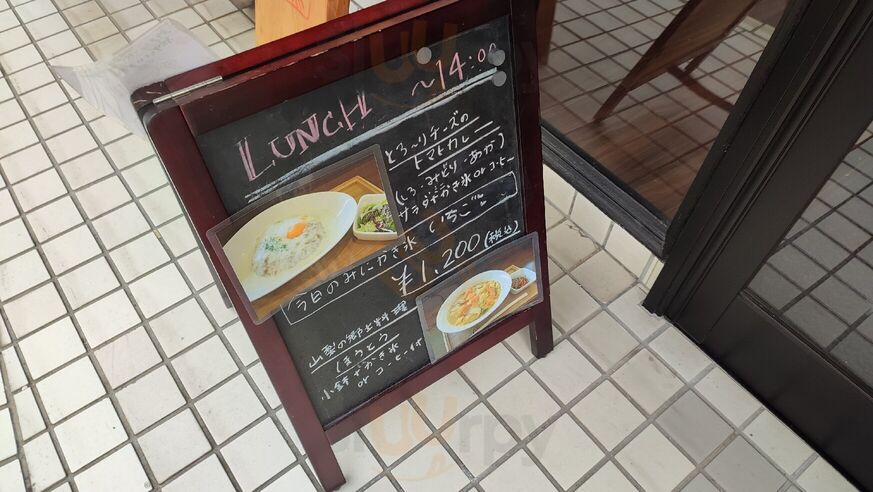 LUNCH ～14:00
とろ〜りチーズの
トマトカレー
(しろ・みどり・あか)
サラダ かき氷 or コーヒー
今日のみにかき氷 いちご
¥1,200 (税込)
山梨の郷土料理
ほうとう
小鉢 かき氷
or コーヒー付